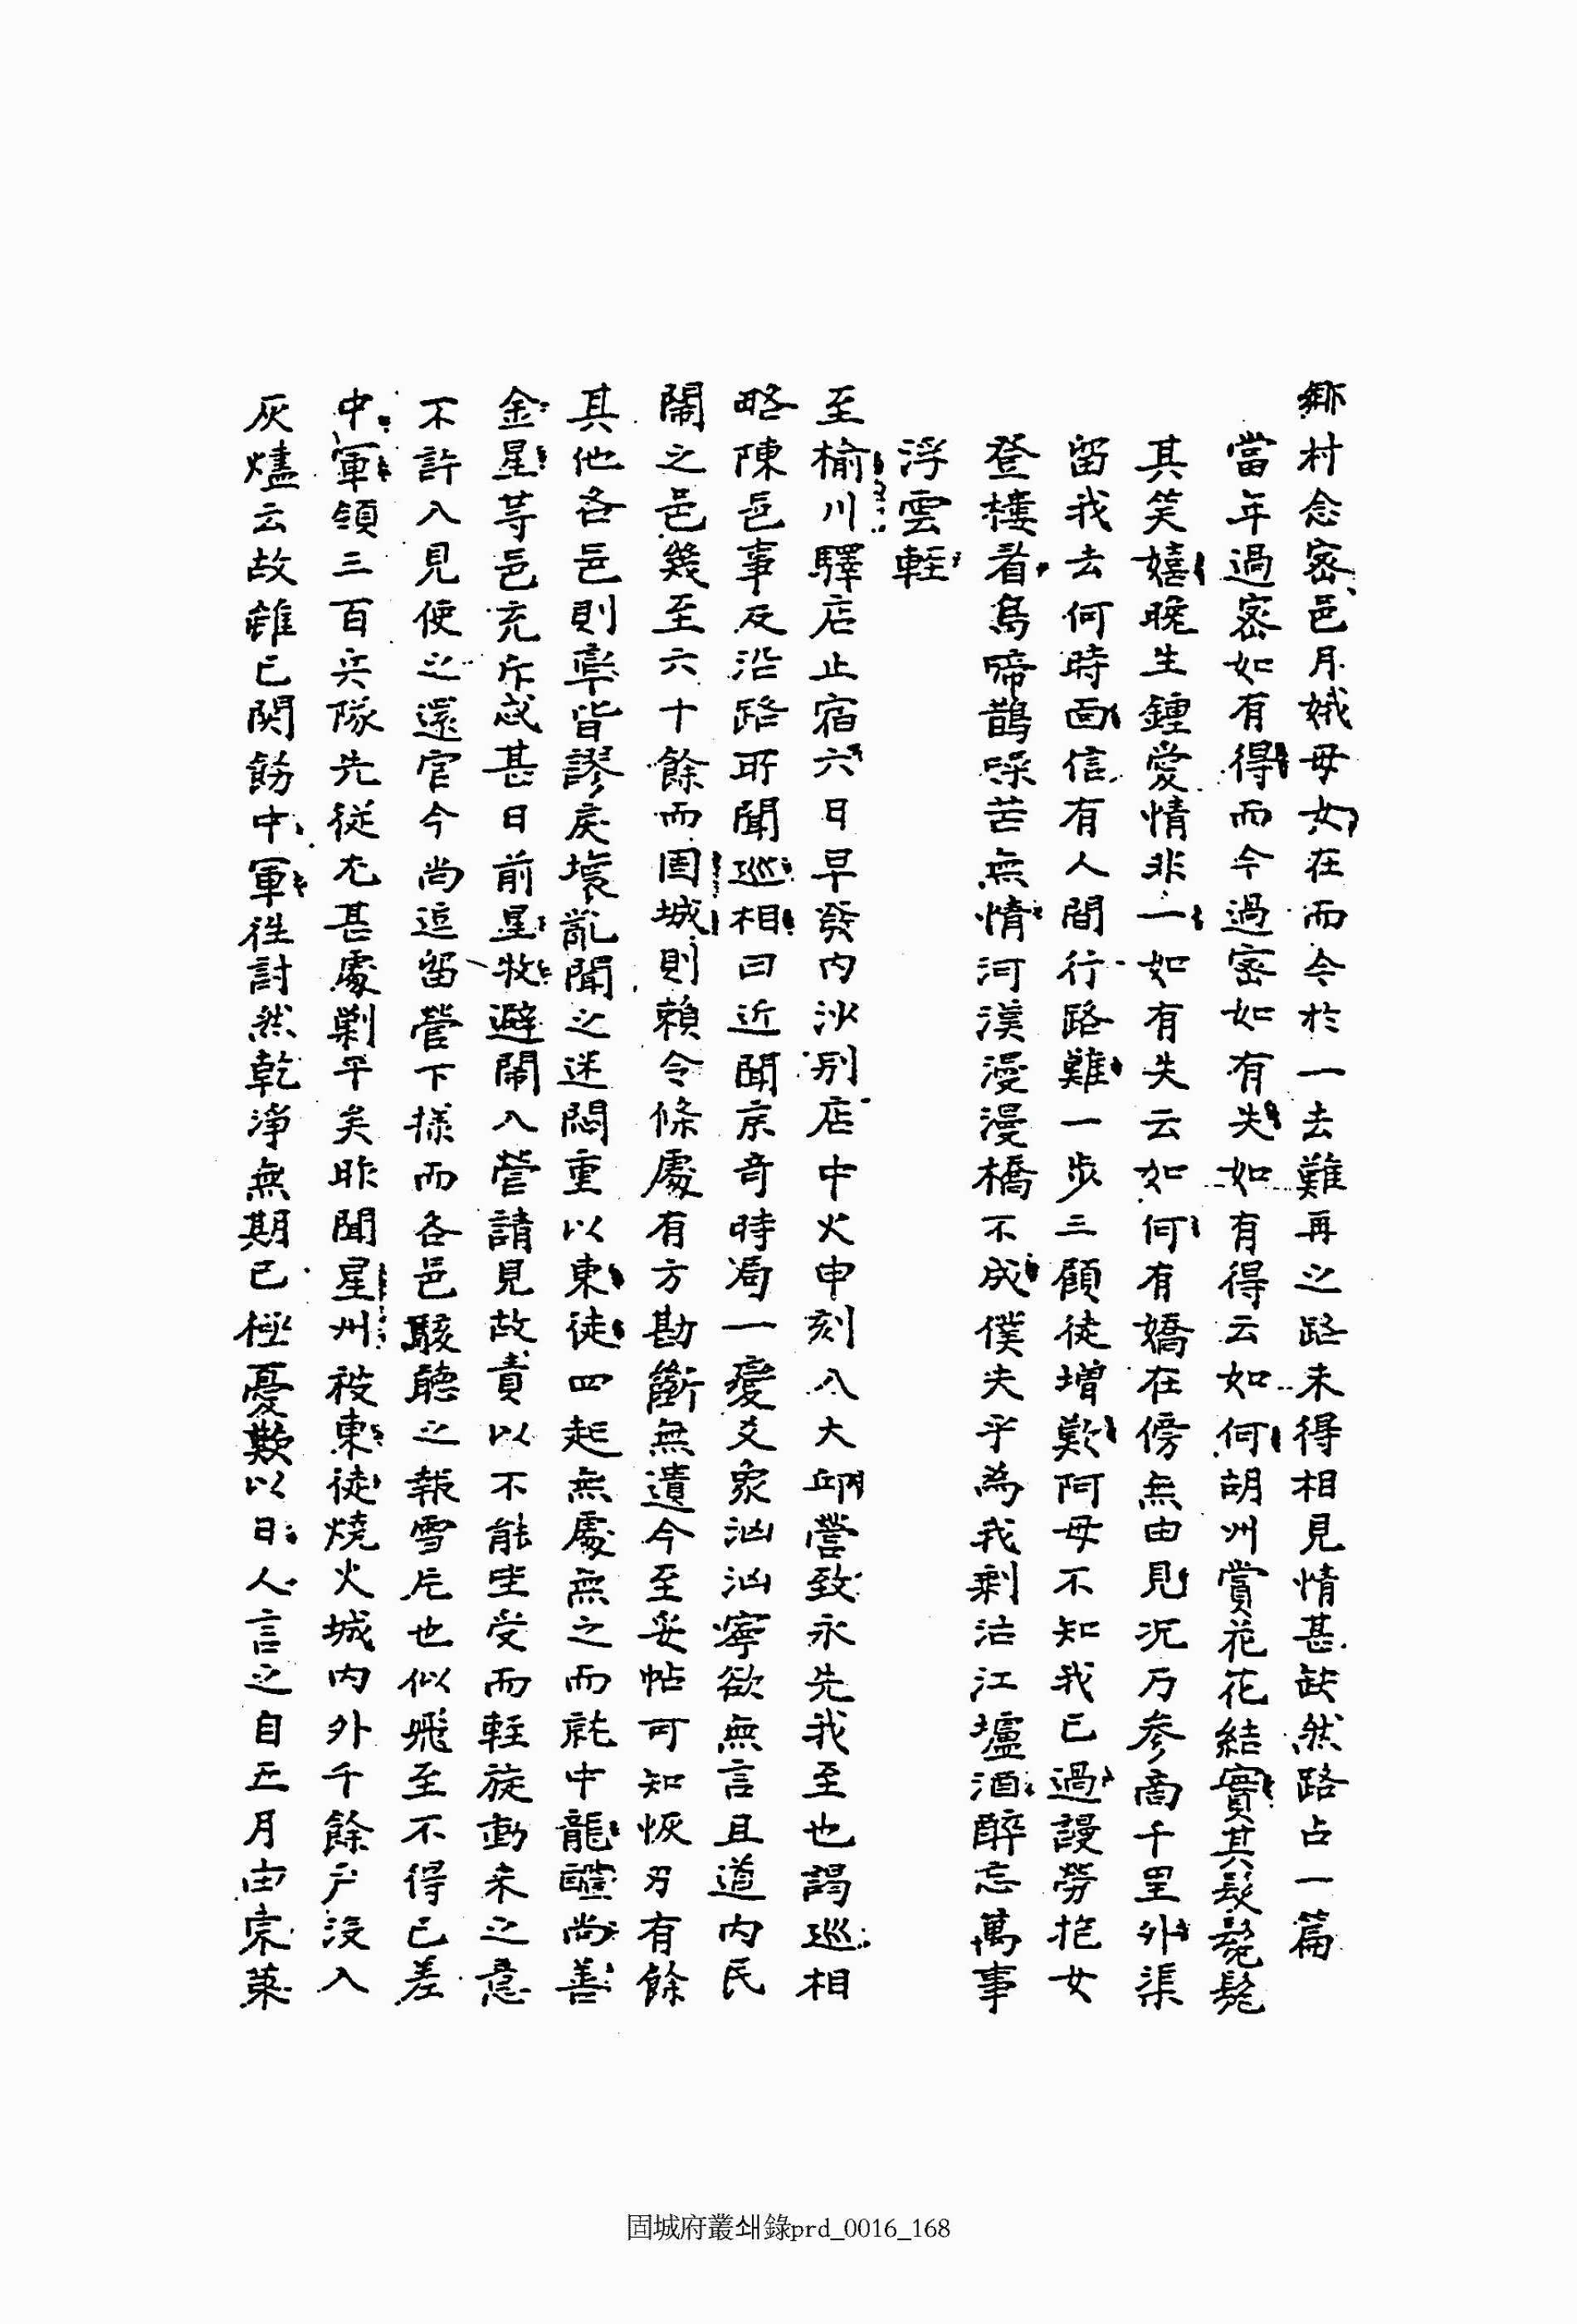 鄉村念密邑月娥母女在而今於一去難再之路未得相見情甚缺然路占一篇
當年過密如有得而今過密如有失如有得云如何胡州賞花花結實其髮鬖髿
其笑嬉晚生鍾愛情非一如有失云如何有嬌在傍無由見况乃參商千里外渠
留我去何時面信有人間行路難一步三顧徒增歎阿母不知我已過謾勞抱女
登樓看烏啼鵲噪苦無情河漢漫漫橋不成僕夫乎為我剩沽江壚酒醉忘萬事
浮雲輕
至楡川驛店止宿六日早發內沙別店中火申刻入大邱營致永先我至也謁巡相
略陳邑事及沿路所聞巡相曰近聞京奇時局一變爻象汹汹寧欲無言且道內民
鬧之邑幾至六十餘而固城則賴令條處有方勘斷無遺今至妥帖可知恢刃有餘
其他各邑則擧皆謬戾壞亂聞之迷悶重以東徒四起無處無之而就中龍醴尚善
金星等邑充斥忒甚日前星牧避鬧入營請見故責以不能坐受而輕旋動來之意
不許入見使之還官今尚逗留營下撓而各邑駭聽之報雪片也似飛至不得已差
中軍領三百兵隊先從尤甚處剿平矣昨聞星州被東徒燒火城內外千餘戶沒入
灰燼云故雖已関飭中軍徃討然乾淨無期已極憂歎以日人言之自五月由京萊